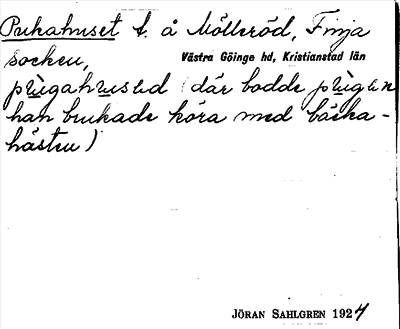 Pukahuset t. å Mölleröd, Finja
socken, Västra Göinge hd, Kristianstad län
pꞟugahused (där bodde pꞟugen
han brukade köra med bäcka-
hästen)
JÖRAN SAHLGREN 1924